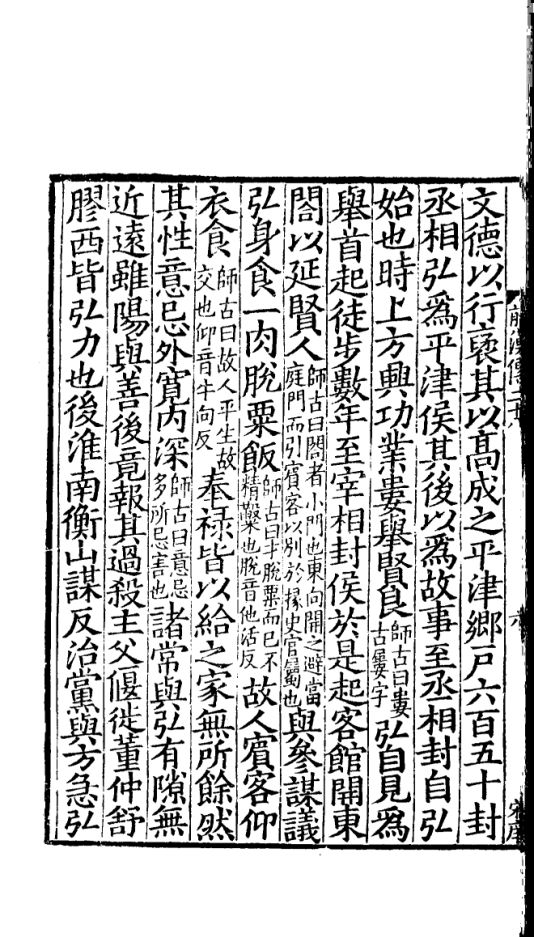 文德以行襃其以髙成之平津郷戸六百五十封
丞相弘爲平津侯其後以爲故事至丞相封自弘
始也時上方興功業婁舉賢良師古曰婁古屢字弘自見爲
舉首起徒步數年至宰相封侯於是起客館開東
閤以延賢人師古曰閤者小門也東向開之避當庭門而引賓客以别於掾史官屬也與參謀議
弘身食一肉脫粟飯師古曰才脫粟而已不精鑿也脫音他活反故人賓客仰
衣食師古曰故人平生故交也仰音牛向反奉禄皆以給之家無所餘然
其性意忌外寛内深師古曰意忌多所忌害也諸常與弘有隙無
近遠雖陽與善後竟報其過殺主父偃徙董仲舒
膠西皆弘力也後淮南衡山謀反治黨與方急弘